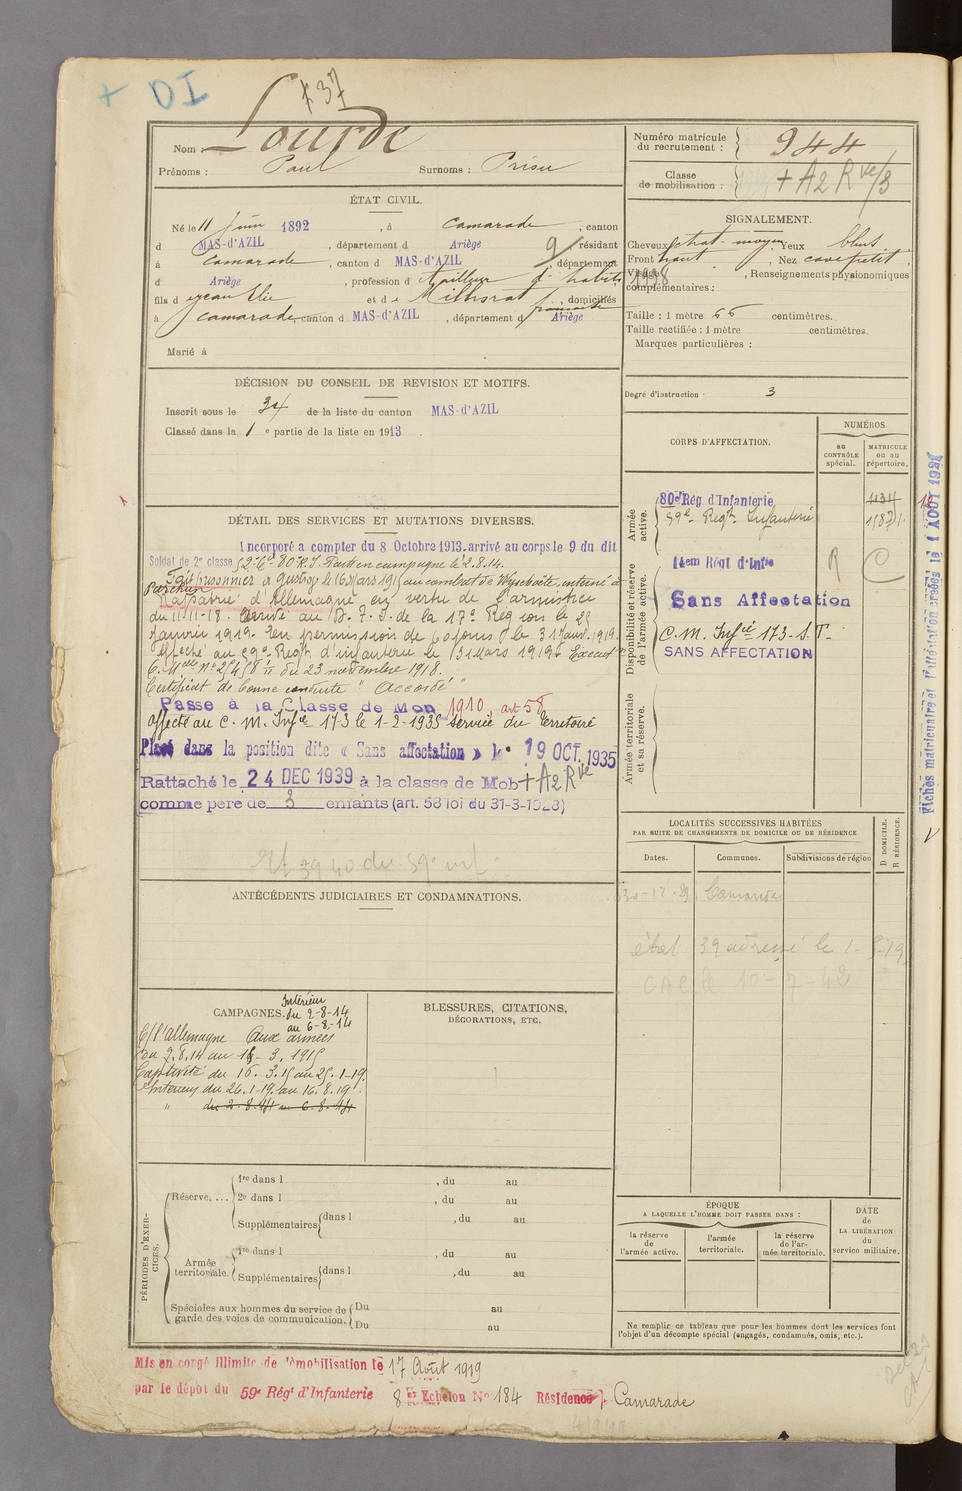 + DI
737
Nom : Lourde
Prénoms : Paul Surnoms :
Numéro matricule du recrutement : 944
Classe de mobilisation : + A2 Rve/3
ÉTAT CIVIL.
Né le 11 Juin 1892, à Camarade, canton
d MAS-d'AZIL, département d Ariège, résidant
à Camarade, canton d MAS-d'AZIL, département
d Ariège, profession d tailleur d'habits
fils d e Jean Elie et d e, domiciliés
à Camarade, canton d MAS-d'AZIL, département d Ariège
Marié à
SIGNALEMENT.
Cheveux chat. moyen Yeux bleus
Front haut, Nez cave petit.
Visage, Renseignements physionomiques
complémentaires :
1938
Taille : 1 mètre 66 centimètres.
Taille rectifiée : 1 mètre centimètres.
Marques particulières :
Degré d'instruction : 3
DÉCISION DU CONSEIL DE REVISION ET MOTIFS.
Inscrit sous le 34 de la liste du canton MAS-d'AZIL
Classé dans la 1e partie de la liste en 1913.
DÉTAIL DES SERVICES ET MUTATIONS DIVERSES.
Incorporé à compter du 8 Octobre 1913. arrivé au corps le 9 du dit
Soldat de 2e classe Parti en campagne le 2.8.14.
Fait prisonnier à le 16 Mars 1915 au combat de interné à
Parchim
Rapatrié d'Allemagne en vertu de l'armistice
du 11-11-18. Arrivé au de la 17e Région le 25
Janvier 1919. En permission de 60 jours le 31 Janv. 1919.
Affecté au 59e Regt d'infanterie le 31 Mars 1919.
du 23 novembre 1918.
Certificat de bonne conduite "Accordé"
Passé à la Classe de Mon 1910, art 58
Affecté au C. M. Infie 173 le 1-2-1935 service du Territoire
Placé dans la position dite « Sans affectation » le 19 OCT. 1935
Rattaché le 24 DEC 1939 à la classe de Mob + A2 Rve
comme père de 3 enfants (art. 58 loi du 31-3-1928)
CORPS D'AFFECTATION.
NUMÉROS
au CONTRÔLE spécial.
MATRICULE ou au répertoire.
Armée active.
80e Rég d'Infanterie
59e Regt Infanterie
Disponibilité et réserve de l'armée active.
14em Régt d'Infie R
Sans Affectation
C. M. Infie 173 - S. T -
SANS AFFECTATION
Armée territoriale et sa réserve.
LOCALITÉS SUCCESSIVES HABITÉES
PAR SUITE DE CHANGEMENTS DE DOMICILE OU DE RÉSIDENCE
Dates. Communes. Subdivisions de région
D DOMICILE.
R RÉSIDENCE.
Camarade
CAC le 10-7-42
ANTÉCÉDENTS JUDICIAIRES ET CONDAMNATIONS.
CAMPAGNES.
Intérieur
du 2-8-14
au 6-8-14
C/ l'allemagne Aux armées
au 16-3.1915
Captivité du 16.3.15 au 25.1.19.
Intérieur du 26.1.19. au 16.8.19
" du 2.8.14 au 6.8.14
BLESSURES, CITATIONS,
DÉCORATIONS, ETC.
PÉRIODES D'EXERCICES.
Réserve....
1re dans l , du au
2e dans l , du au
Supplémentaires dans l , du au
Armée territoriale.
1re dans l , du au
Supplémentaires dans l , du au
Spéciales aux hommes du service de garde des voies de communication.
Du au
Du au
ÉPOQUE
A LAQUELLE L'HOMME DOIT PASSER DANS :
la réserve de l'armée active.
l'armée territoriale.
la réserve de l'armée territoriale.
DATE de LA LIBÉRATION du service militaire.
Ne remplir ce tableau que pour les hommes dont les services font
l'objet d'un décompte spécial (engagés, condamnés, omis, etc.).
Mis en congé illimité de démobilisation le 17 Août 1919
par le dépôt du 59e Régt d'Infanterie 8e Echelon No 184 Résidence Camarade